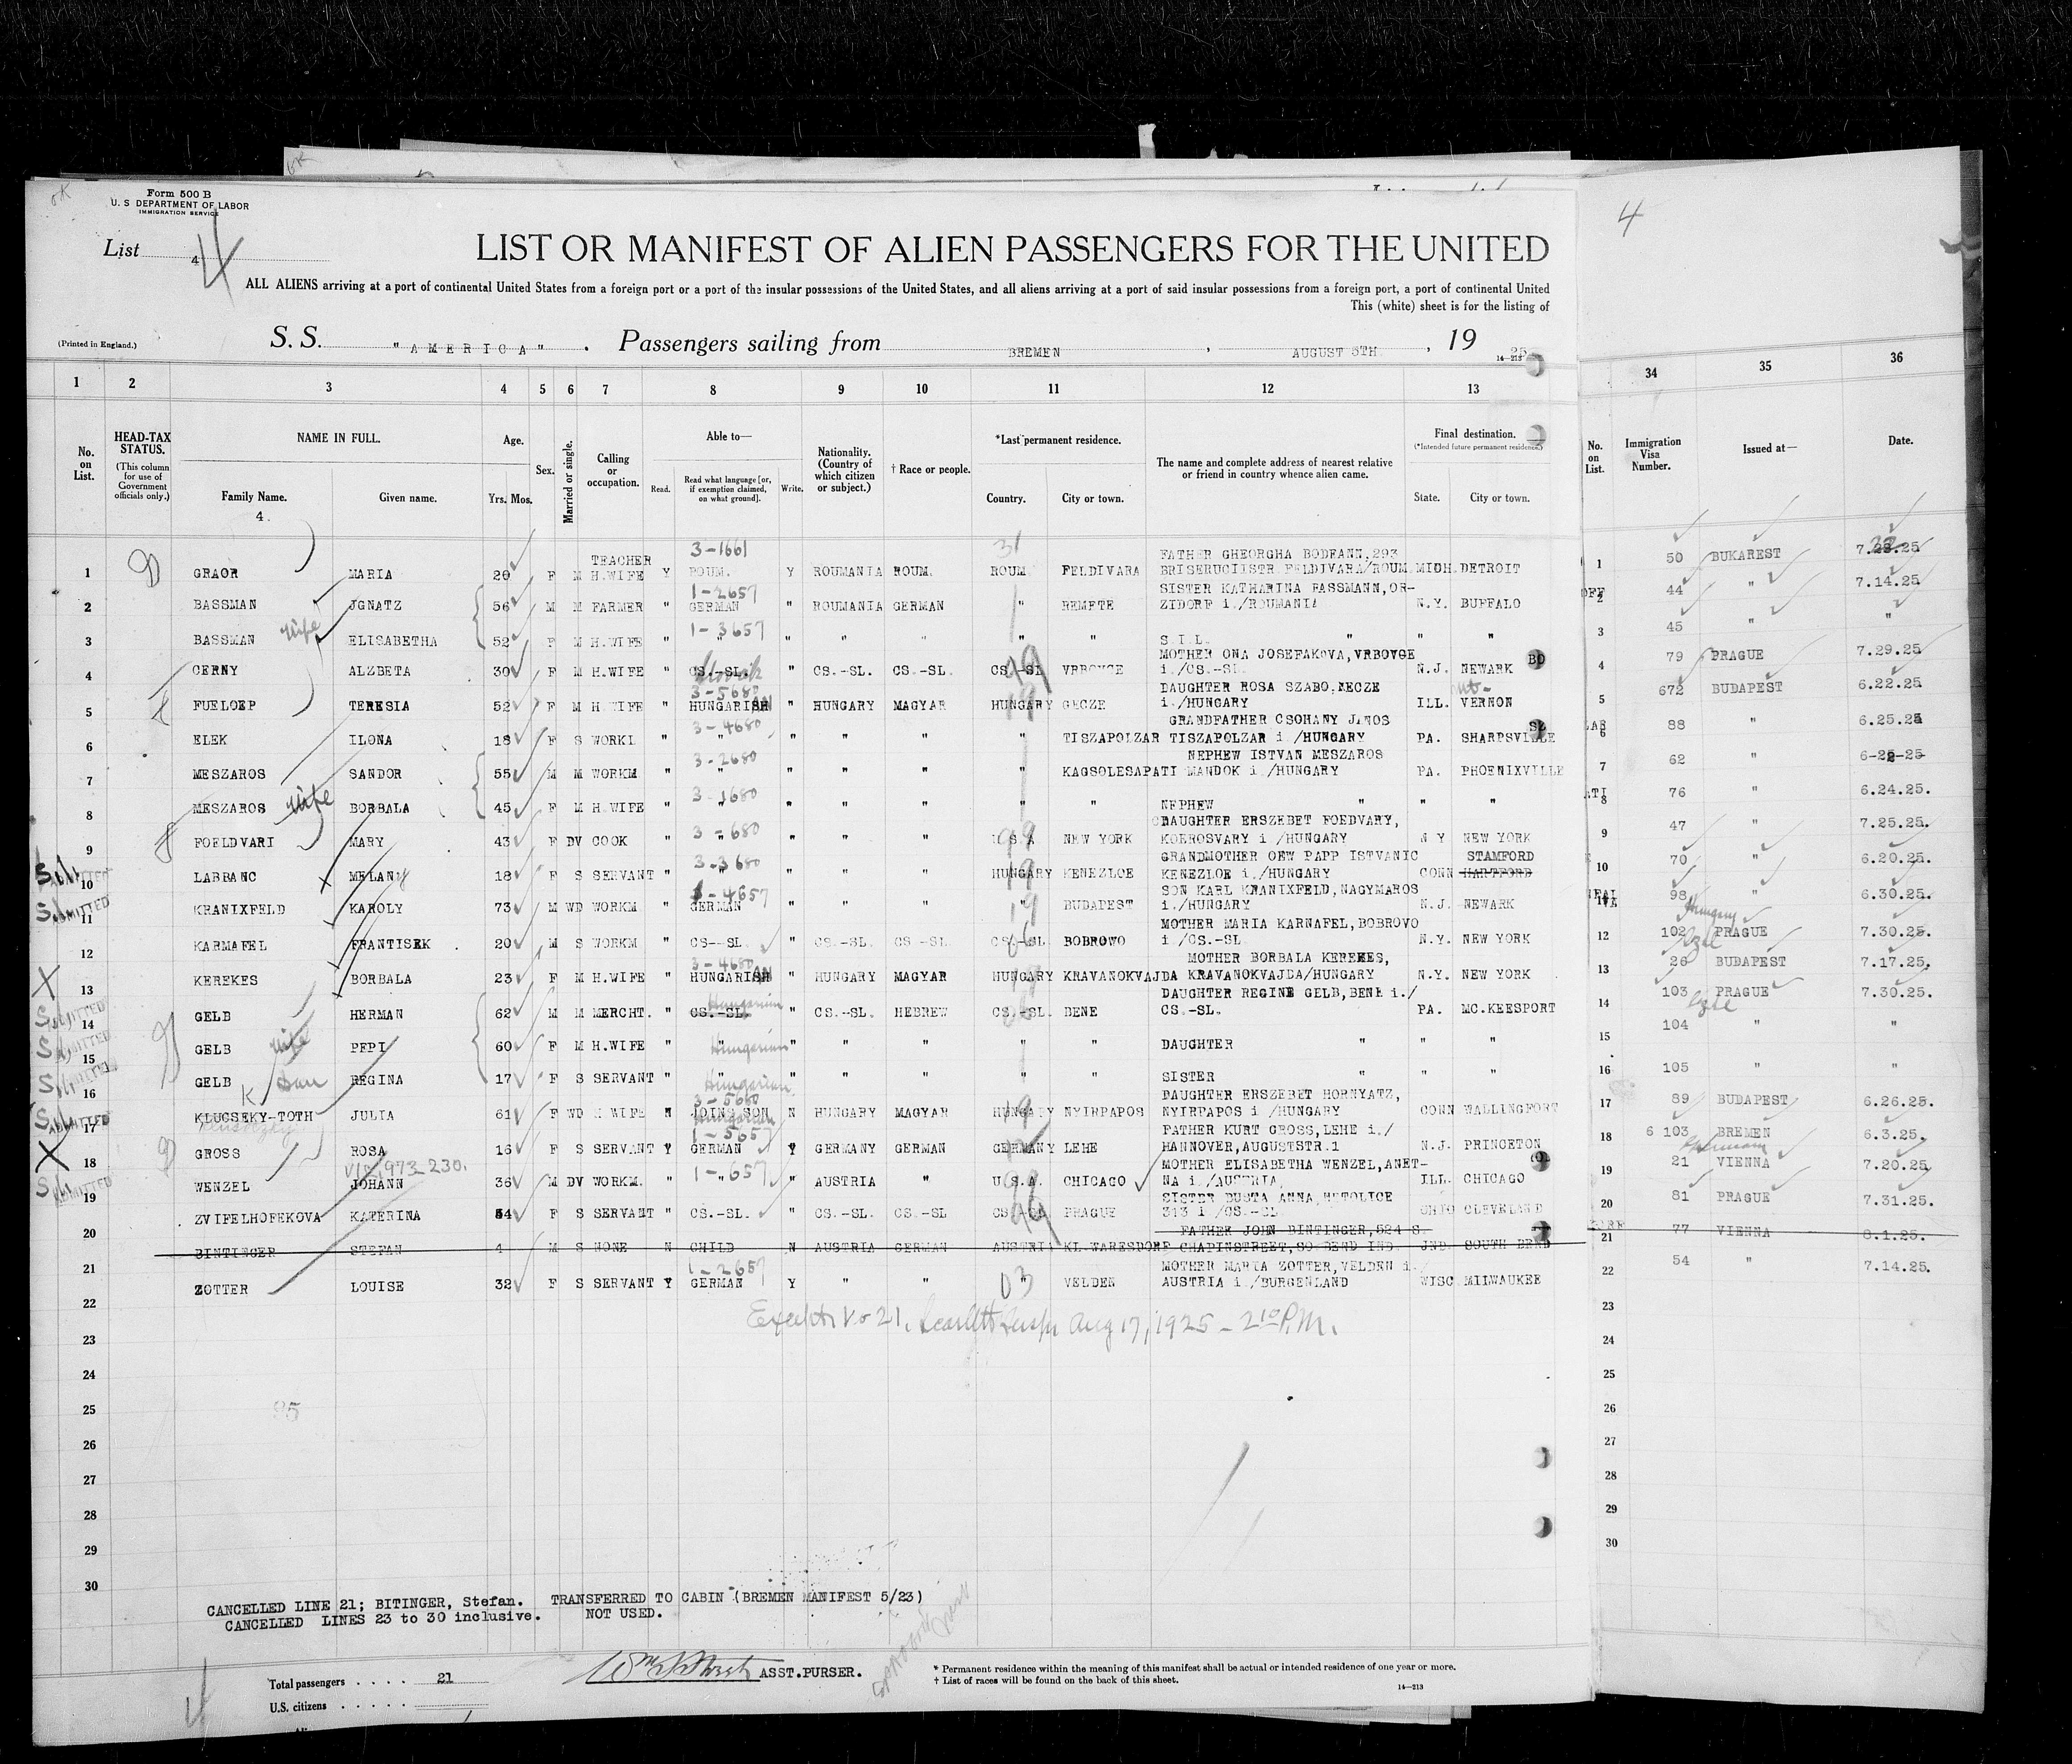 Form 500 B
U. S DEPARTMENT OF LABOR
IMMIGRATION SERVICE
List 4
4
LIST OR MANIFEST OF ALIEN PASSENGERS FOR THE UNITED
ALL ALIENS arriving at a port of continental United States from a foreign port or a port of the insular possessions of the United States, and all aliens arriving at a port of said insular possessions from a foreign port, a port of continental United
This (white) sheet is for the listing of
(Printed in England.)
S. S. "AMERICA" . Passengers sailing from BREMEN , AUGUST 5TH , 19 25
14—213
1 2 3 4 5 6 7 8 9 10 11 12 13 34 35 36
No. on List.
HEAD-TAX STATUS.
(This column for use of Government officials only.)
NAME IN FULL.
Family Name. Given name.
4.
Age.
Yrs. Mos.
Sex.
Married or single.
Calling or occupation.
Able to—
Read. Read what language [or, if exemption claimed, on what ground]. Write.
Nationality. (Country of which citizen or subject.)
† Race or people.
*Last permanent residence.
Country. City or town.
The name and complete address of nearest relative or friend in country whence alien came.
Final destination.
(*Intended future permanent residence.)
State. City or town.
No. on List.
Immigration Visa Number.
Issued at—
Date.
TEACHER 3-1661 31 FATHER GHEORGHA BODFANN,293
1 GRAOR MARIA 20 F M H.WIFE Y ROUM. Y ROUMANIA ROUM. ROUM FELDIVARA BRISERUCIISTR FELDIVARA/ROUM. MICH. DETROIT 1 50 BUKAREST 7.28.25
1-2657 SISTER KATHARINA BASSMANN,OR-
2 BASSMAN JGNATZ 56 M M FARMER " GERMAN " ROUMANIA GERMAN " REMETE ZIDORF i./ROUMANIA N.Y. BUFFALO 2 44 " 7.14.25
1-3657
3 BASSMAN Wife ELISABETHA 52 F M H.WIFE " " " " " " " S.I.L. " " " 3 45 " "
MOTHER ONA JOSEFAKOVA,VRBOVCE
4 CERNY ALZBETA 30 F M H.WIFE " CS.-SL. Slovak " CS.-SL. CS.-SL. CS.-SL 99 VRBOVCE i./CS.-SL. N.J. NEWARK 4 79 PRAGUE 7.29.25
3-5680 DAUGHTER ROSA SZABO,NECZE
5 FUELOEP TERESIA 52 F M H.WIFE " HUNGARIAN " HUNGARY MAGYAR HUNGARY GECZE i./HUNGARY ILL. VERNON 5 672 BUDAPEST 6.22.25
3-4680 GRANDFATHER CSOHANY JANOS
6 ELEK ILONA 18 F S WORKL " " " " " " TISZAPOLZAR TISZAPOLZAR i./HUNGARY PA. SHARPSVILLE 6 88 " 6.25.25
3-2680 NEPHEW ISTVAN MESZAROS
7 MESZAROS SANDOR 55 M M WORKM " " " " " " KAGSOLESAPATI MANDOK i./HUNGARY PA. PHOENIXVILLE 7 62 " 6-22-25
3-1680
8 MESZAROS Wife BORBALA 45 F M H.WIFE " " " " " " " NEPHEW " " " 8 76 " 6.24.25.
3-680 DAUGHTER ERSZEBET FOEDVARY,
9 FOELDVARI MARY 43 F DV COOK " " " " " U.S.A. 99 NEW YORK KOEROSVARY i /HUNGARY N Y NEW YORK 9 47 " 7.25.25.
3-3680 GRANDMOTHER OEW PAPP ISTVANIC STAMFORD
10 LABBANC MELANY 18 F S SERVANT " " " " " HUNGARY 19 KENEZLOE KENEZLOE i./HUNGARY CONN HARTFORD 10 70 " 6.20.25.
1-4657 SON KARL KRANIXFELD,NAGYMAROS
11 KRANIXFELD KAROLY 73 M WD WORKM " GERMAN " " " " 19 BUDAPEST i./HUNGARY N.J. NEWARK 98 " 6.30.25.
MOTHER MARIA KARNAFEL,BOBROVO
12 KARMAFEL FRANTISEK 20 M S WORKM. " CS--SL. " CS.-SL. CS -SL. CS.-SL. BOBROWO i./CS.-SL N.Y. NEW YORK 12 102 PRAGUE 7.30.25.
3-4680 MOTHER BORBALA KEREKES,
13 KEREKES BORBALA 23 F M H.WIFE " HUNGARIAN " HUNGARY MAGYAR HUNGARY KRAVANOKVAJDA KRAVANOKVAJDA/HUNGARY N.Y. NEW YORK 13 26 BUDAPEST 7.17.25.
Hungarian DAUGHTER REGINE GELB,BENE i./
14 GELB HERMAN 62 M M MERCHT. " CS.-SL. " CS.-SL. HEBREW CS.-SL. BENE CS.-SL. PA. MC.KEESPORT 14 103 PRAGUE 7.30.25.
15 GELB Wife PEPI 60 F M H.WIFE " " Hungarian " " " " " DAUGHTER " " " 15 104 " "
16 GELB Dau REGINA 17 F S SERVANT " " Hungarian " " " " " SISTER " " " 16 105 " "
3-5680 DAUGHTER ERSZEBET HORNYATZ,
17 KLUCSEKY-TOTH JULIA 61 F WD H WIFE N JOINS SON N HUNGARY MAGYAR HUNGARY 19 NYIRPAPOS NYIRPAPOS i /HUNGARY CONN WALLINGFORT 17 89 BUDAPEST 6.26.25.
Hungarian
1-5657 FATHER KURT GROSS,LEHE i./
18 GROSS ROSA 16 F S SERVANT Y GERMAN Y GERMANY GERMAN GERMANY LEHE HANNOVER,AUGUSTSTR.1 N.J. PRINCETON 18 6 103 BREMEN 6.3.25.
1-657 MOTHER ELISABETHA WENZEL,ANET-
19 WENZEL JOHANN 36 M DV WORKM. " " " AUSTRIA " U.S.A. 99 CHICAGO NA i./AUSTRIA, ILL. CHICAGO 19 21 VIENNA 7.20.25
SISTER DUSTA ANNA,HETOLICE
20 ZVIFELHOFEKOVA KATERINA 54 F S SERVANT " CS.-SL. " CS.-SL. CS.-SL PRAGUE 313 i /CS.-SL. OHIO CLEVELAND 20 81 PRAGUE 7.31.25.
FATHER JOHN BINTINGER,524 S.
21 BINTINGER STEFAN 4 M S NONE N CHILD N AUSTRIA GERMAN AUSTRIA KL.WARESDORF CHAPINSTREET,SO BEND IND. JND. SOUTH BEND 21 77 VIENNA 8.1.25.
1-2657 MOTHER MARIA ZOTTER,VELDEN i.
22 ZOTTER LOUISE 32 F S SERVANT Y GERMAN Y " " " 03 VELDEN AUSTRIA i./BURGENLAND WISC MILWAUKEE 22 54 " 7.14.25.
Except No 21. Aug 17, 1925 - 2 10 P.M.
23 23
24 24
25 25
26 26
27 27
28 28
29 29
30 30
CANCELLED LINE 21; BITINGER, Stefan. TRANSFERRED TO CABIN (BREMEN MANIFEST 5/23)
CANCELLED LINES 23 to 30 inclusive. NOT USED.
ASST.PURSER.
Total passengers . . . . 21
U.S. citizens . . . . .
* Permanent residence within the meaning of this manifest shall be actual or intended residence of one year or more.
† List of races will be found on the back of this sheet.
14—213